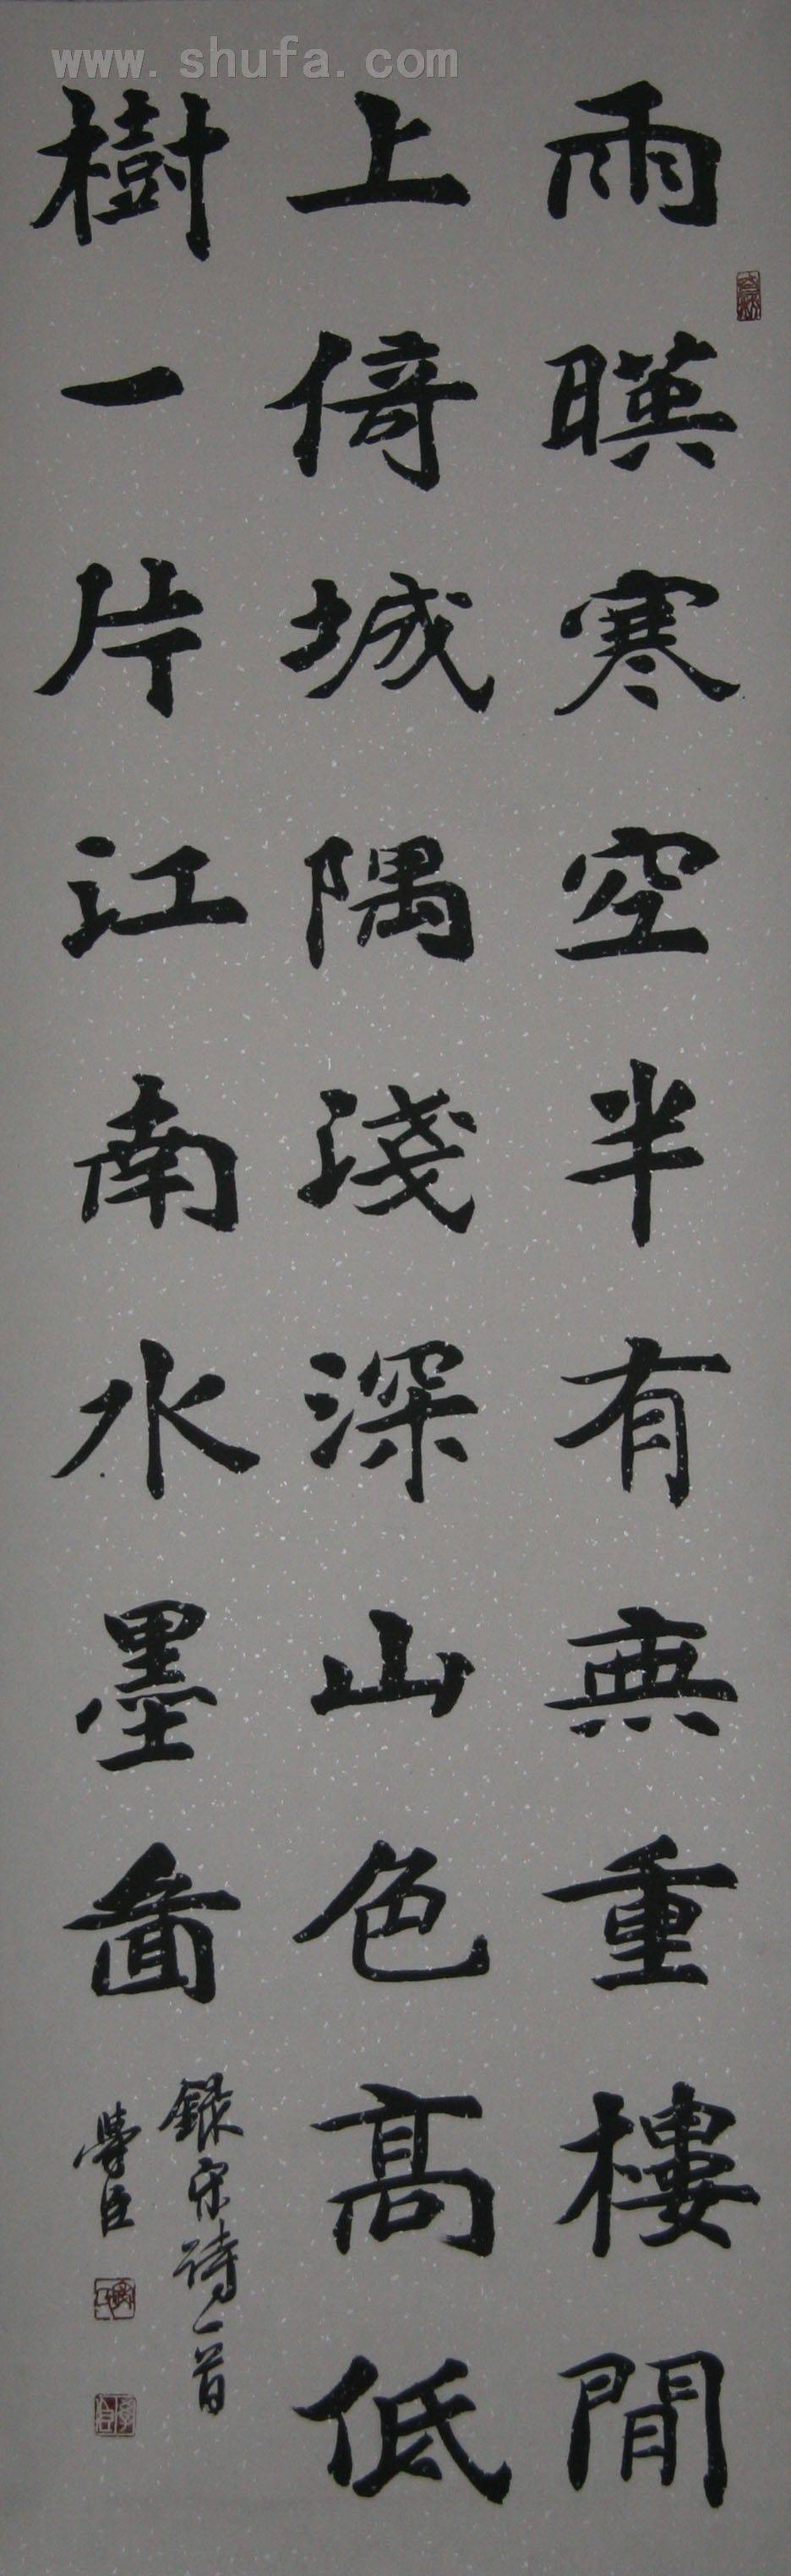 www.shufa.com
雨暎寒空半有無重樓閒
上倚城隅淺深山色高低
樹一片江南水墨啚
錄宋詩一首
學臣